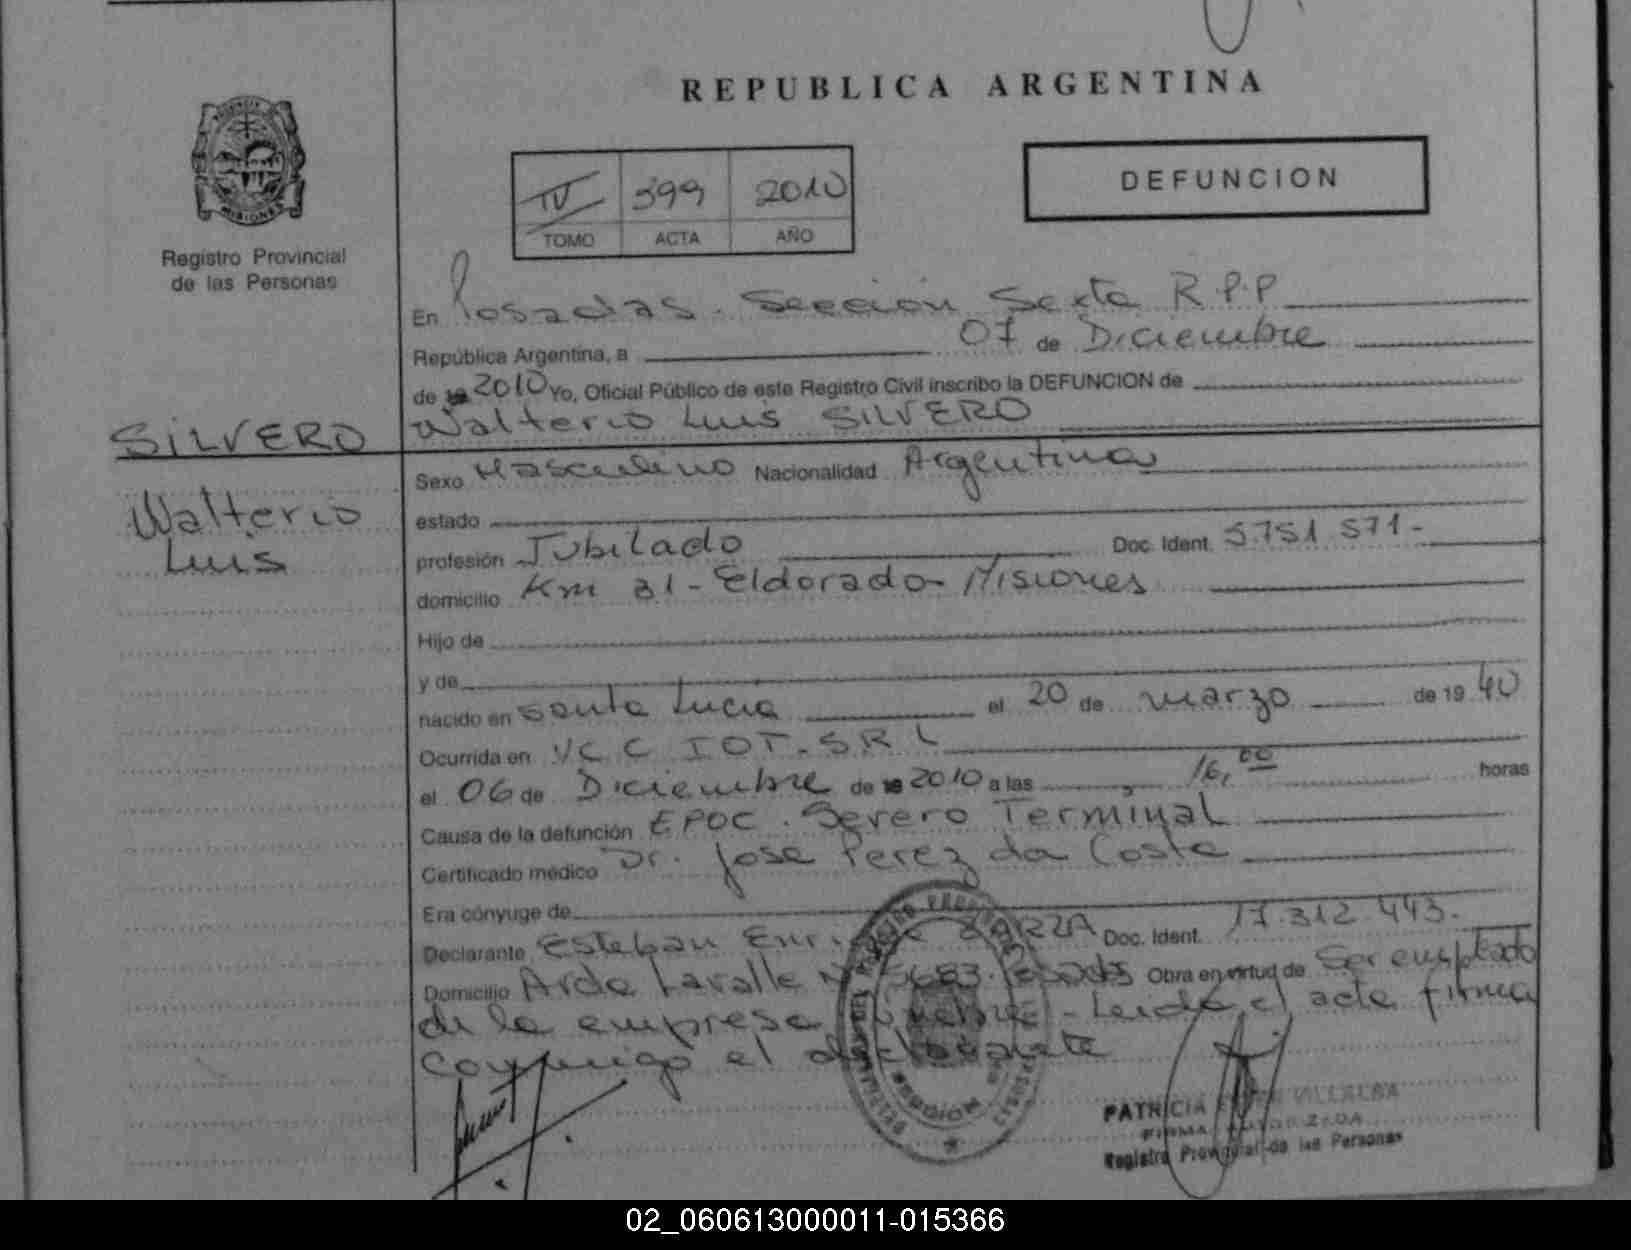 REPUBLICA ARGENTINA
MISIONES
Registro Provincial
de las Personas
IV 399 2010
TOMO ACTA AÑO
DEFUNCION
En Posadas. Sección Sexta R.P.P
República Argentina, a 07 de Diciembre
de 19 2010 Yo, Oficial Público de este Registro Civil inscribo la DEFUNCION de
SILVERO
Walterio Luis SILVERO
Walterio
Luis
Sexo Masculino Nacionalidad Argentina
estado
profesión Jubilado Doc. Ident. 5.751.571-
domicilio Km 31 - Eldorado - Misiones
Hijo de
y de
nacido en Santa Lucia el 20 de marzo de 1940
Ocurrida en I.O.T. S R L
el 06 de Diciembre de 19 2010 a las 16,00 horas
Causa de la defunción EPOC. Severo Terminal
Certificado médico Dr. Jose Perez da Costa
Era cónyuge de
Declarante Esteban Doc. Ident. 17.312.443.
Domicilio Avda Lavalle N° 5683. Posadas Obra en virtud de Ser empleado
de la empresa - Leida el acta firma
conmigo el declarante
PATRICIA VILLALBA
FIRMA AUTORIZADA
Registro Provincial de las Personas
02_060613000011-015366